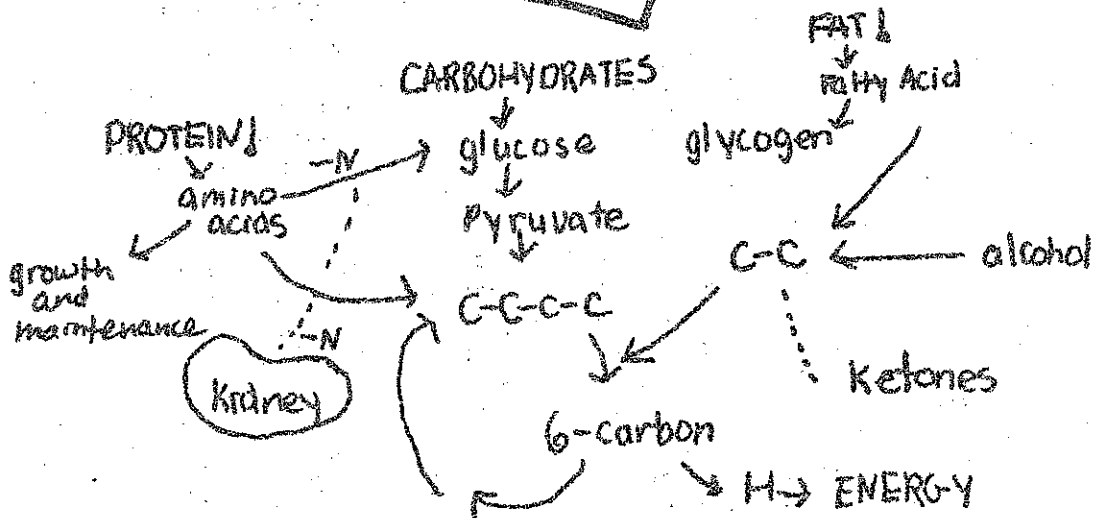 FAT↓
Fatty Acid
CARBOHYDRATES
PROTEIN↓
glucose
glycogen
-N
amino
acids
Pyruvate
growth
and
maintenance
C-C
alcohol
C-C-C-C
-N
Kidney
Ketones
6-carbon
H→ ENERGY